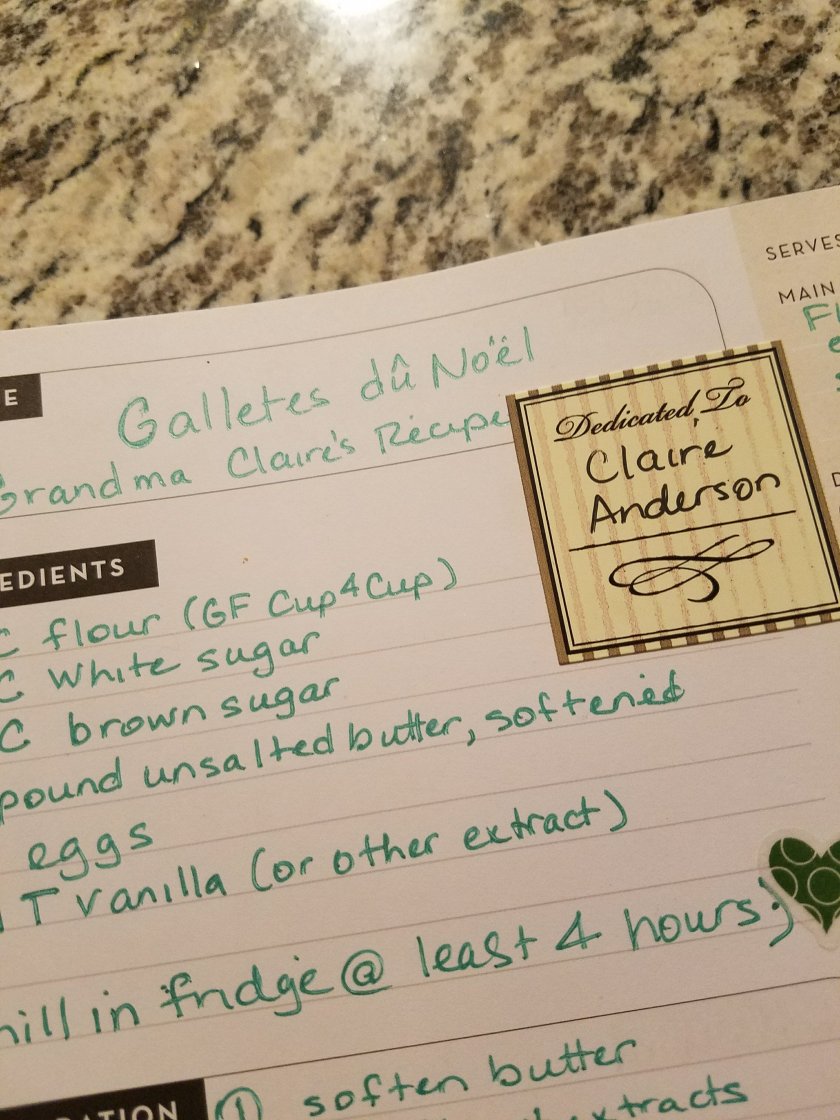 E
Galletes dû Noël
Grandma Claire's Recipe
EDIENTS
C flour (GF Cup4Cup)
C white sugar
C brown sugar
pound unsalted butter, softened
eggs
1 T vanilla (or other extract)
hill in fridge @ least 4 hours)
ATION
① soften butter
extracts
Dedicated To
Claire
Anderson
SERVES
MAIN
Fl
e
D